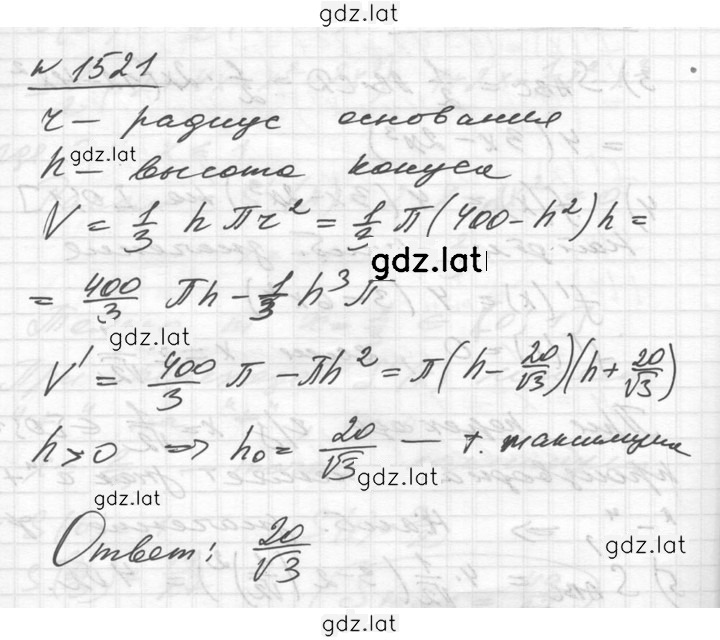 gdz.lat
№ 1521
r – радиус основания
gdz.lat
h – высота конуса
V = 1/3 h πr² = 1/3 π(400 - h²)h =
gdz.lat
= 400/3 πh - 1/3 h³π
gdz.lat
V' = 400/3 π - πh² = π(h - 20/√3)(h + 20/√3)
h > 0 => h₀ = 20/√3 — т. максимума
gdz.lat
gdz.lat
Ответ: 20/√3
gdz.lat
gdz.lat